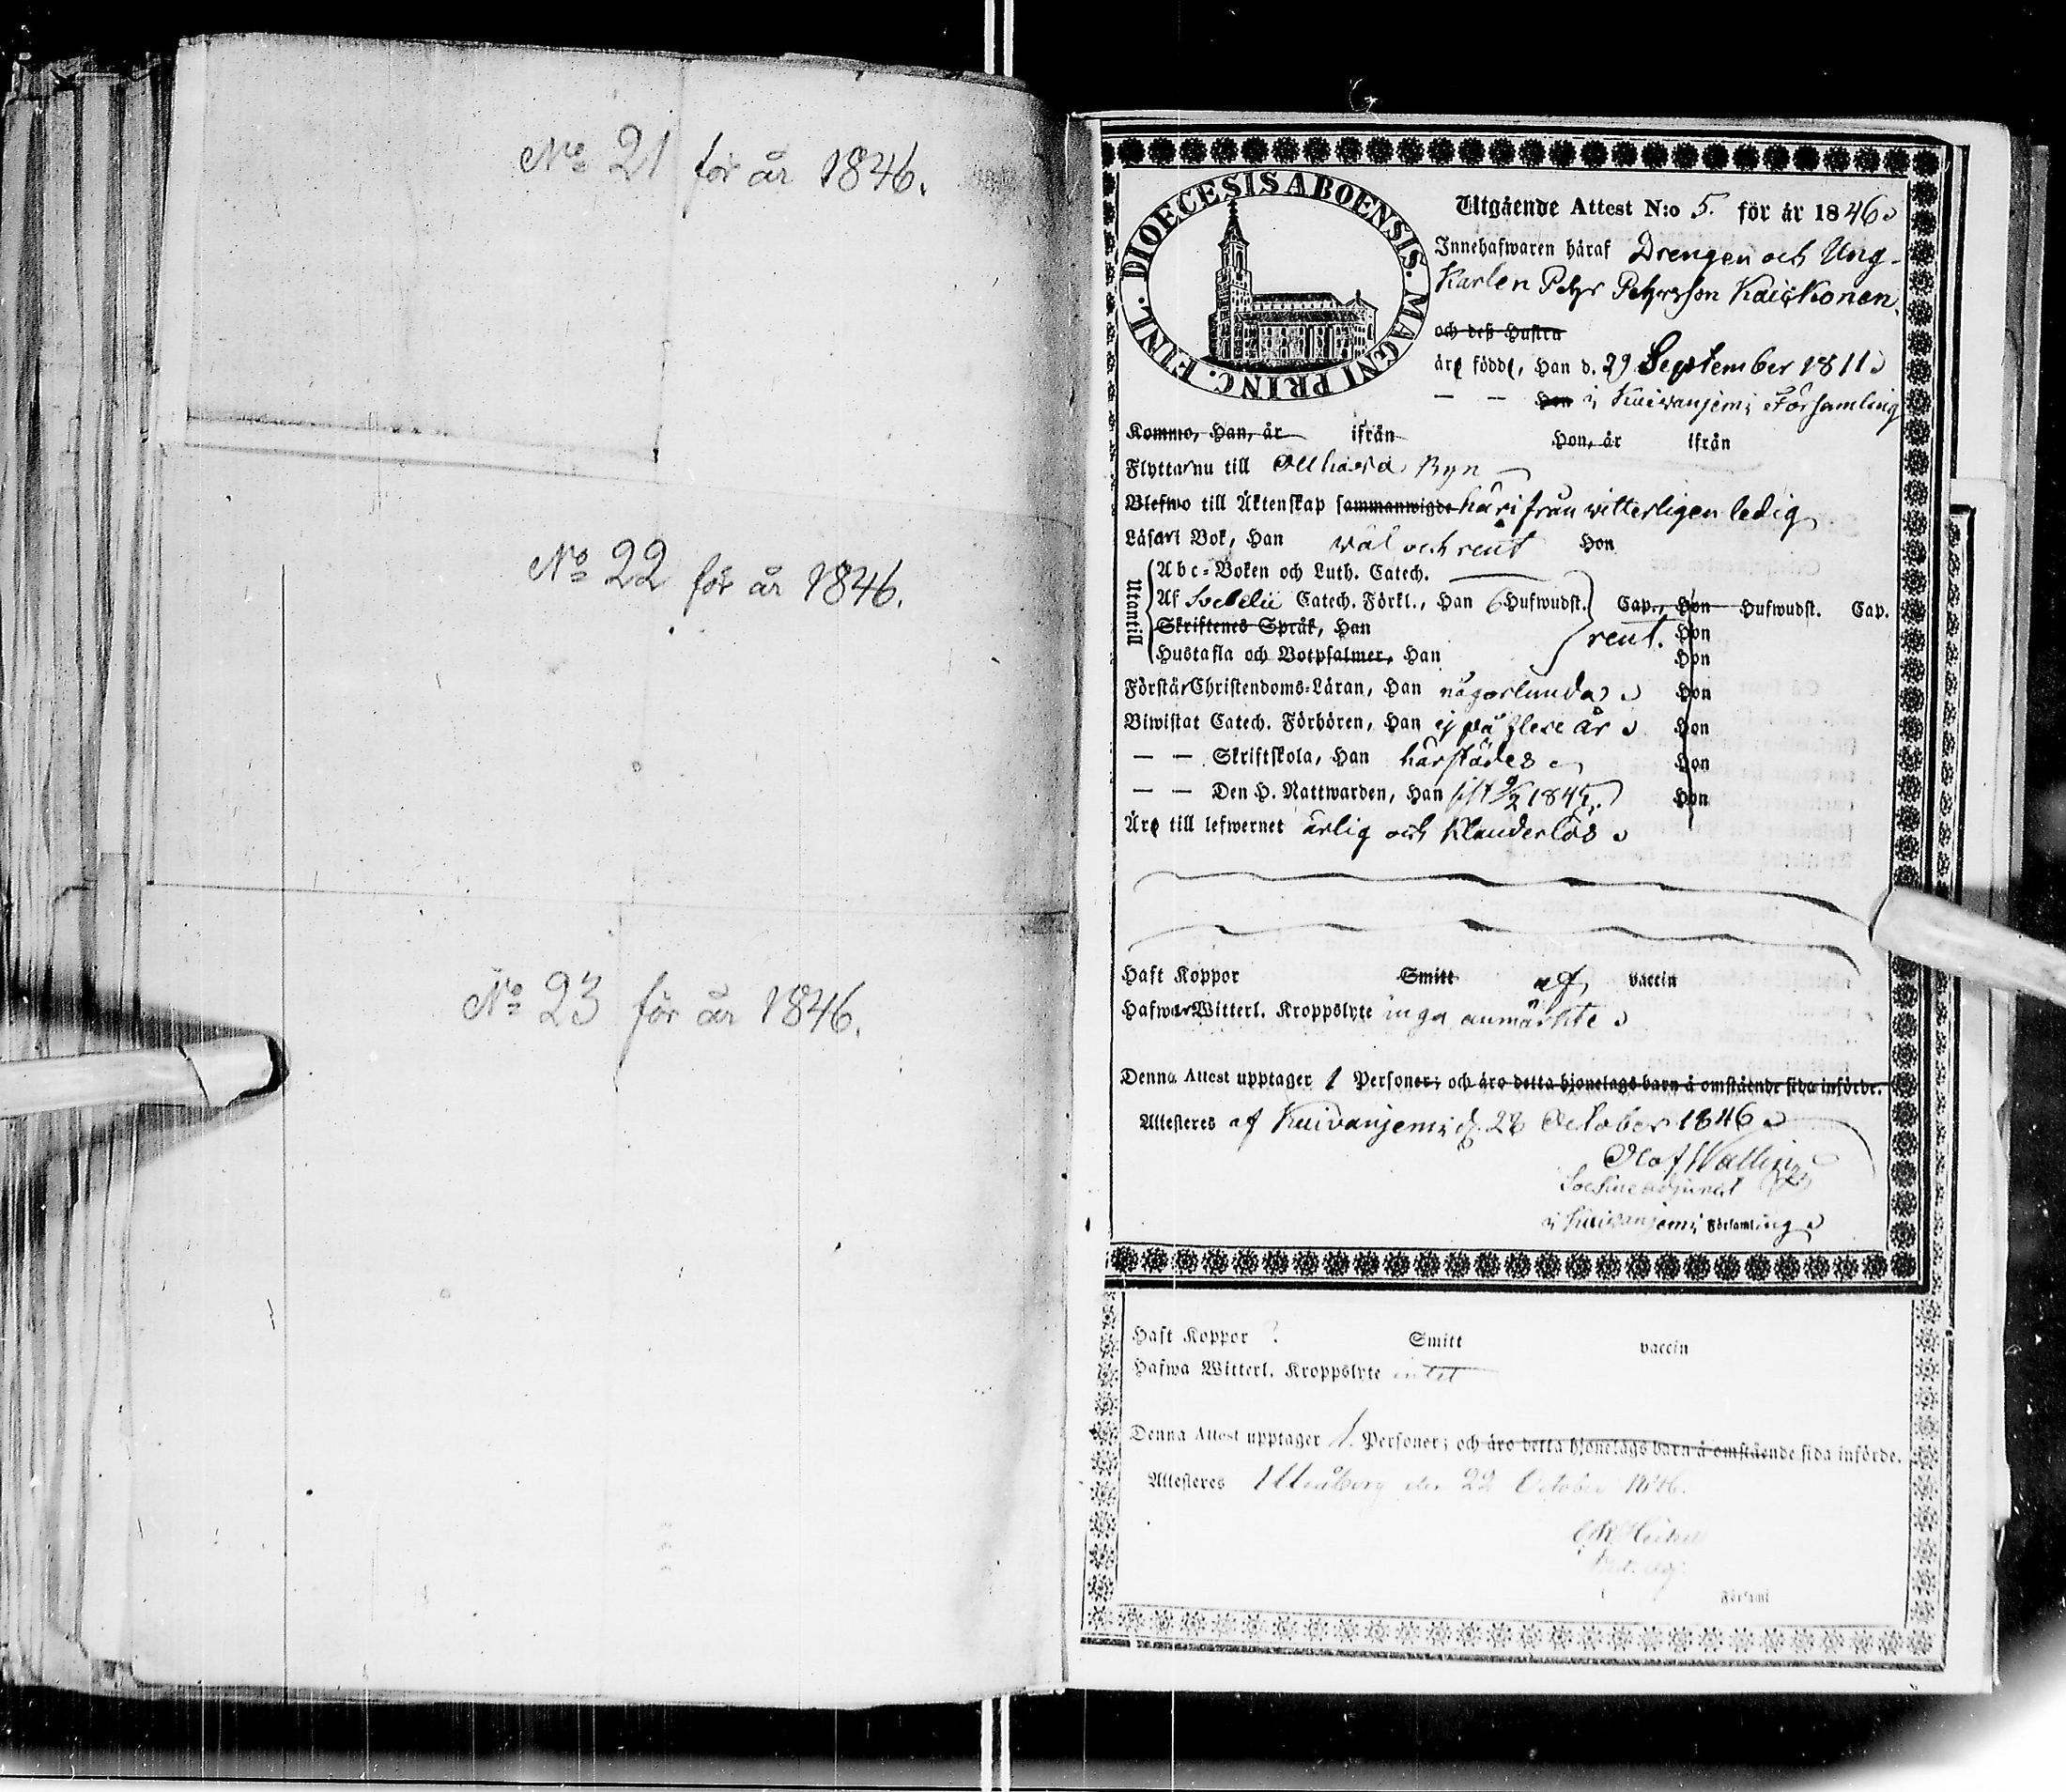 No 21 för år 1846.
No 22 för år 1846.
No 23 för år 1846.
DIOECESIS ABOENSIS. MAGNI PRINC. FINL.
Utgående Attest N:o 5. för år 1846
Innehafwaren häraf Drengen och Ung-
Karlen Petr Petersson Kaiskonen
och deß Hustru
äro födde, Han d. 29 September 1811
— — Hon i Kuivanjemi Församling
Kommo, Han, år ifrån Hon, år ifrån
Flyttar nu till Byn
Blefwo till Äktenskap sammanwigde härifrån witterligen ledig
Läsa i Bok, Han wäl och rent Hon
Utantill
Abc-Boken och Luth. Catech.
Af Svebelii Catech. Förkl., Han 6 Hufwudst. Cap., Hon Hufwudst. Cap.
Skriftenes Språk, Han rent. Hon
Hustafla och Botpsalmer, Han Hon
Förstår Christendoms-Läran, Han någorlunda Hon
Biwistat Catech. Förhören, Han ej på flere år Hon
— — Skriftskola, Han härstädes Hon
— — Den H. Nattwarden, Han sist 9/2 1845. Hon
Äro till lefwernet ärlig och klanderlös
Haft Koppor Smitt af vaccin
Hafwa Witterl. Kroppslyte inga anmärkte
Denna Attest upptager 1 Personer; och äro detta hjonelags barn å omstående sida införde.
Attesteras af Kuivanjemi d. 28 October 1846
Olof Wallin
Sockneadjunct
i Kuivanjemi Församling
Haft Koppor ? Smitt vaccin
Hafwa Witterl. Kroppslyte intet
Denna Attest upptager 1. Personer; och äro detta hjonelags barn å omstående sida införde.
Attesteras Uleåborg den 22 October 1846.
Församl